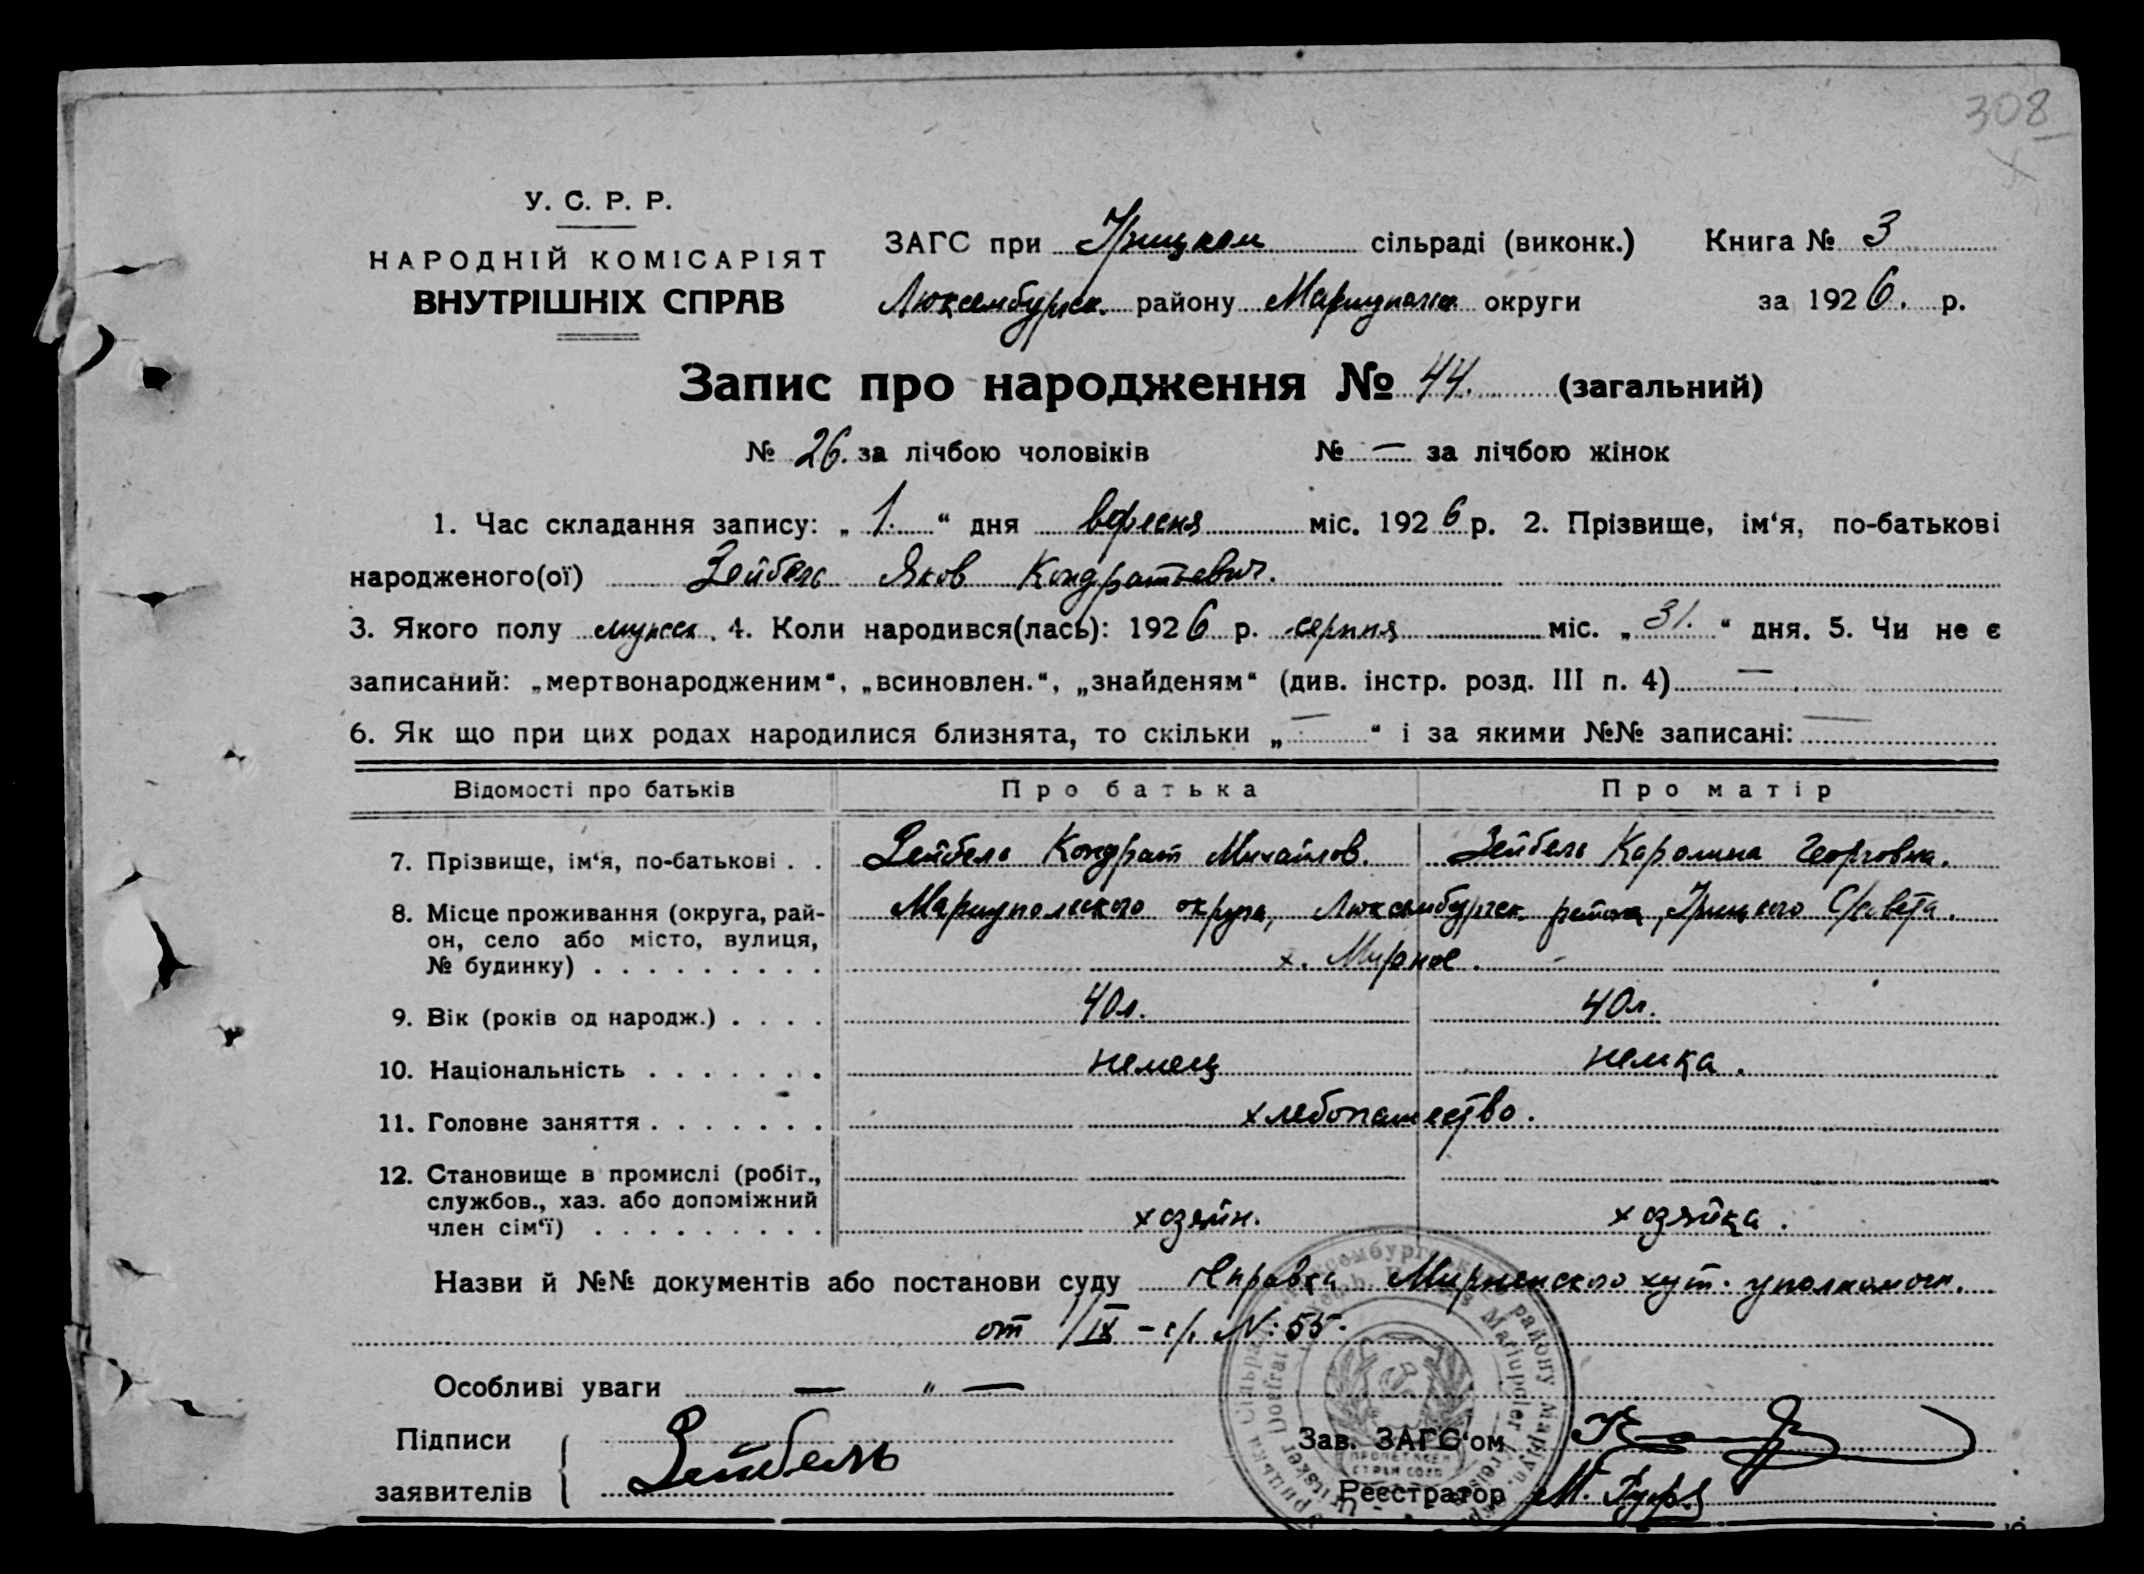 308
У. С. Р. Р.
НАРОДНІЙ КОМІСАРІЯТ
ВНУТРІШНІХ СПРАВ
ЗАГС при Урицком сільраді (виконк.) Книга № 3
Люксембурск. району Мариупольск округи за 1926. р.
Запис про народження № 44. (загальний)
№ 26. за лічбою чоловіків № — за лічбою жінок
1. Час складання запису: „ 1. “ дня вересня міс. 1926 р. 2. Прізвище, ім‘я, по-батькові
народженого(ої) Зейбель Яков Кондратьевич.
3. Якого полу мужеск. 4. Коли народився(лась): 1926 р. серпня міс. „ 31. “ дня. 5. Чи не є
записаний: „мертвонародженим“, „всиновлен.“, „знайденям“ (див. інстр. розд. III п. 4) —
6. Як що при цих родах народилися близнята, то скільки „ — “ і за якими №№ записані: —
Відомості про батьків Про батька Про матір
7. Прізвище, ім‘я, по-батькові . . Зейбель Кондрат Михайлов. Зейбель Каролина Георговна.
8. Місце проживання (округа, рай- Мариупольского округа, Люксембургск. района, Урицкого С/совета.
он, село або місто, вулиця,
№ будинку) . . . . . . . . . х. Мирное.
9. Вік (років од народж.) . . . . 40 л. 40 л.
10. Національність . . . . . . . немец немка.
11. Головне заняття . . . . . . . хлебопашество.
12. Становище в промислі (робіт.,
службов., хаз. або допоміжний
член сім‘ї) . . . . . . . . . хозяин. хозяйка.
Назви й №№ документів або постанови суду Справка Мирненского хут. уполномоч.
от 1/IX - с/. N: 55.
Особливі уваги — " —
Підписи
заявителів Зейбель
Зав. ЗАГС‘ом
Реєстратор М.